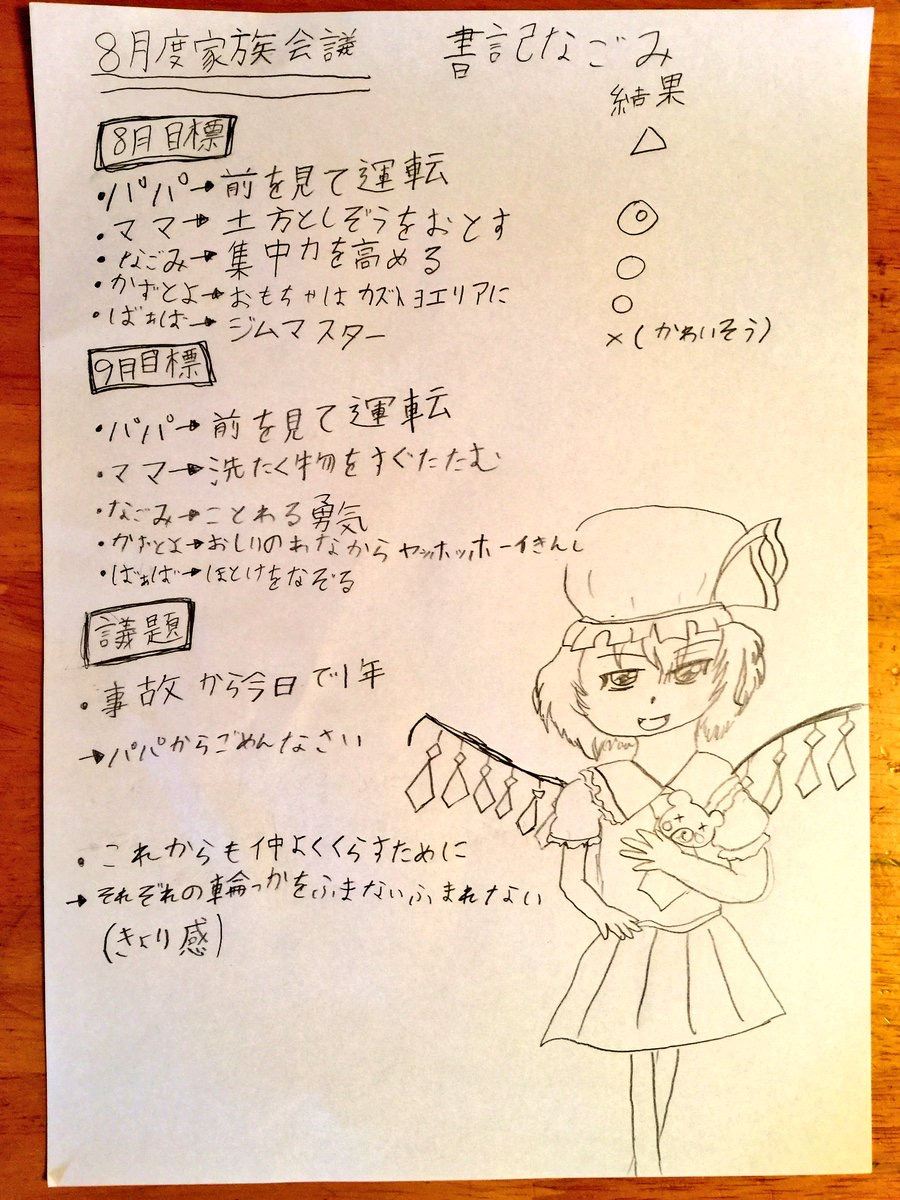 8月度家族会議 書記なごみ
結果
8月目標
・パパ→前を見て運転 △
・ママ→土方としぞうをおとす ◎
・なごみ→集中力を高める ○
・かずとよ→おもちゃはカズトヨエリアに ○
・ばぁば→ジムマスター ×(かわいそう)
9月目標
・パパ→前を見て運転
・ママ→洗たく物をすぐたたむ
・なごみ→ことわる勇気
・かずとよ→おしりのあなからヤッホッホーイきんし
・ばぁば→ほとけをなぞる
議題
・事故から今日で1年
→パパからごめんなさい
・これからも仲よくくらすために
→それぞれの輪っかをふまないふまれない
(きょり感)